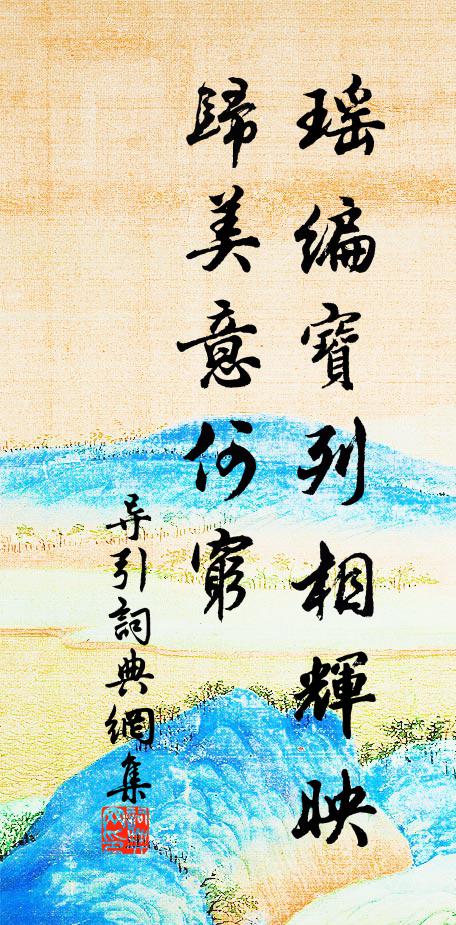 瑶编寶列相輝映
歸美意何窮
导引詞典網集